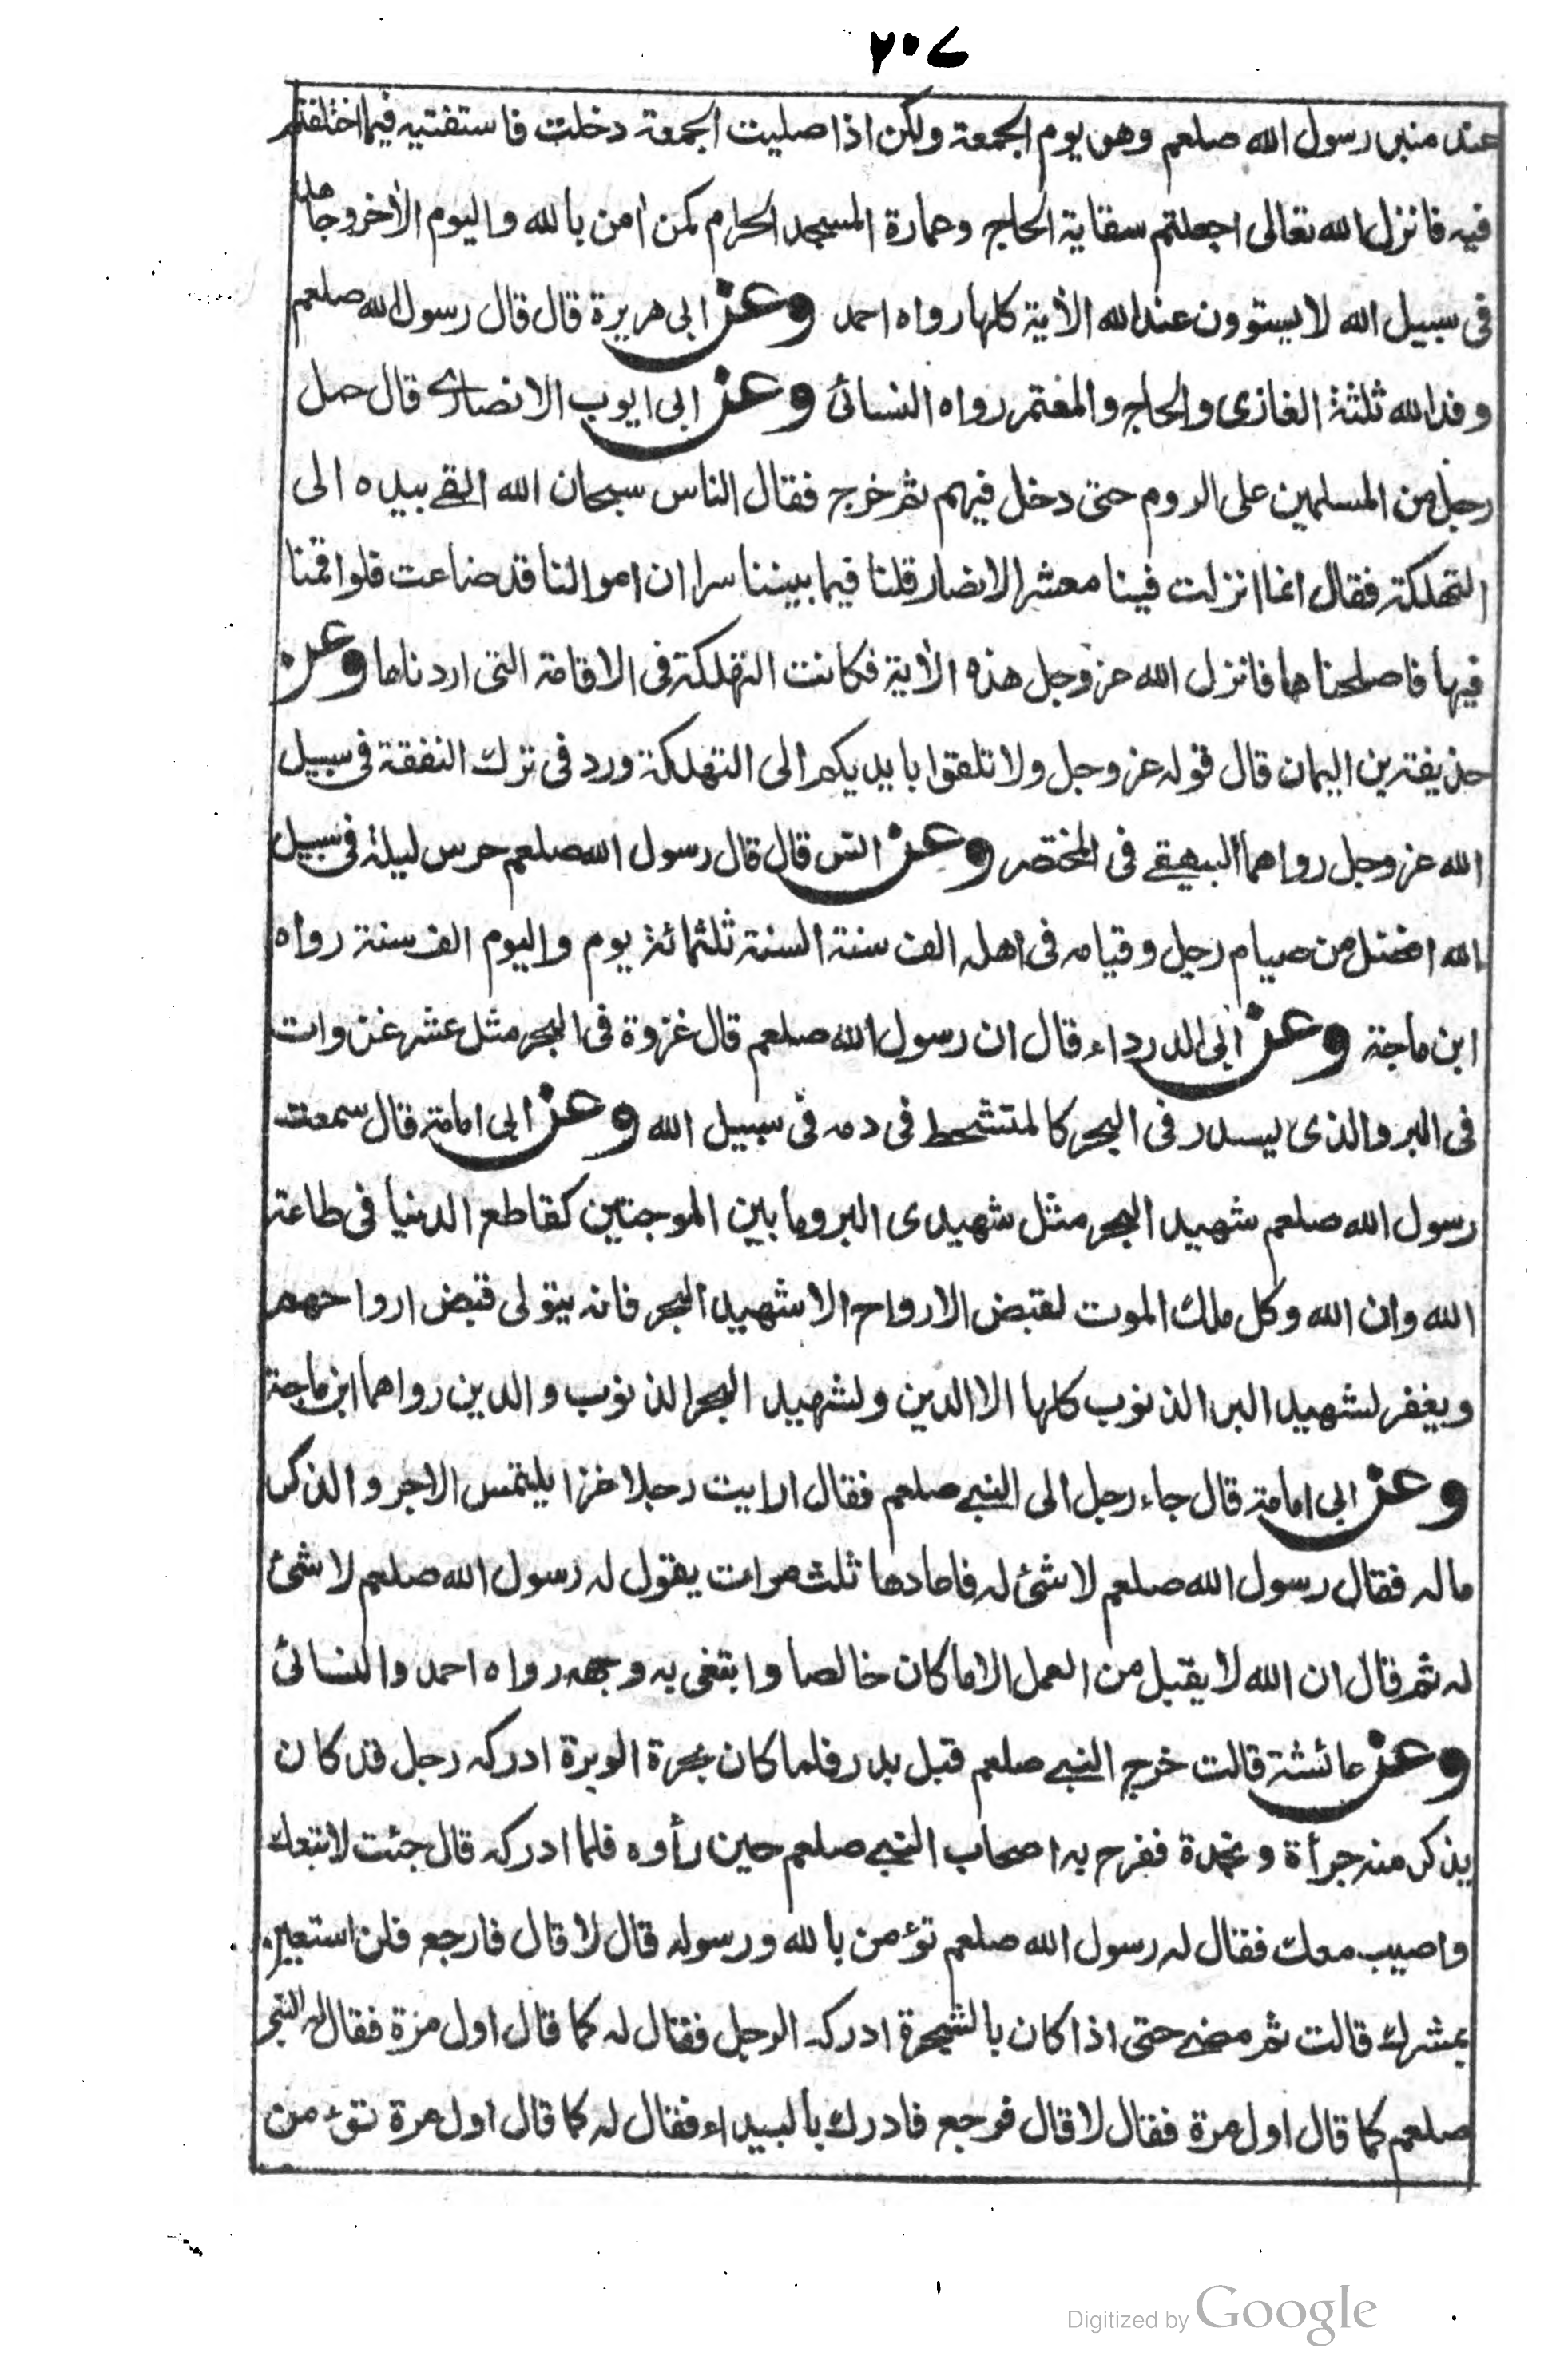 ٢٠٧
عند منبر رسول الله صلعم وهو يوم الجمعة ولكن اذا صليت الجمعة دخلت فاستفتيه فيما اختلفتم
فيه فانزل الله تعالى اجعلتم سقاية الحاج وعمارة المسجد الحرام كمن امن بالله واليوم الأخر وجاهد
فى سبيل الله لا يستوون عند الله الأية كلها رواه احمد وعن ابى هريرة قال قال رسول الله صلعم
وفد الله ثلثة الغازى والحاج والمعتمر رواه النسائى وعن ابى ايوب الانصارى قال حمل
رجل من المسلمين على الروم حتى دخل فيهم ثم خرج فقال الناس سبحان الله القى بيده الى
التهلكة فقال انما انزلت فينا معشر الانصار قلنا فيما بيننا سرا ان اموالنا قد ضاعت فلو اقمنا
فيها فاصلحناها فانزل الله عز وجل هذه الأية فكانت التهلكة فى الاقامة التى اردناها وعن
حذيفة بن اليمان قال قوله عز وجل ولا تلقوا بايديكم الى التهلكة ورد فى ترك النفقة فى سبيل
الله عز وجل رواهما البيهقى فى المختصر وعن انس قال قال رسول الله صلعم حرس ليلة فى سبيل
الله افضل من صيام رجل وقيامه فى اهله الف سنة السنة ثلثمائة يوم واليوم الف سنة رواه
ابن ماجة وعن ابى الدرداء قال ان رسول الله صلعم قال غزوة فى البحر مثل عشر غزوات
فى البر والذى يسدر فى البحر كالمتشحط فى دمه فى سبيل الله وعن ابى امامة قال سمعت
رسول الله صلعم شهيد البحر مثل شهيدى البر وما بين الموجتين كقاطع الدنيا فى طاعة
الله وان الله وكل ملك الموت لقبض الارواح الا شهيد البحر فانه يتولى قبض ارواحهم
ويغفر لشهيد البر الذنوب كلها الا الدين ولشهيد البحر الذنوب والدين رواهما ابن ماجة
وعن ابى امامة قال جاء رجل الى النبى صلعم فقال ارايت رجلا غزا يلتمس الاجر والذكر
ماله فقال رسول الله صلعم لا شئ له فاعادها ثلث مرات يقول له رسول الله صلعم لا شئ
له ثم قال ان الله لا يقبل من العمل الا ما كان خالصا وابتغى به وجهه رواه احمد والنسائى
وعن عائشة قالت خرج النبى صلعم قبل بدر فلما كان بحرة الوبرة ادركه رجل قد كان
يذكر منه جرأة ونجدة ففرح به اصحاب النبى صلعم حين رأوه فلما ادركه قال جئت لاتبعك
واصيب معك فقال له رسول الله صلعم تؤمن بالله ورسوله قال لا قال فارجع فلن استعين
بمشرك قالت ثم مضى حتى اذا كان بالشجرة ادركه الرجل فقال له كما قال اول مرة فقال له النبى
صلعم كما قال اول مرة فقال لا قال فرجع فادرك بالبيداء فقال له كما قال اول مرة تؤمن
Digitized by Google